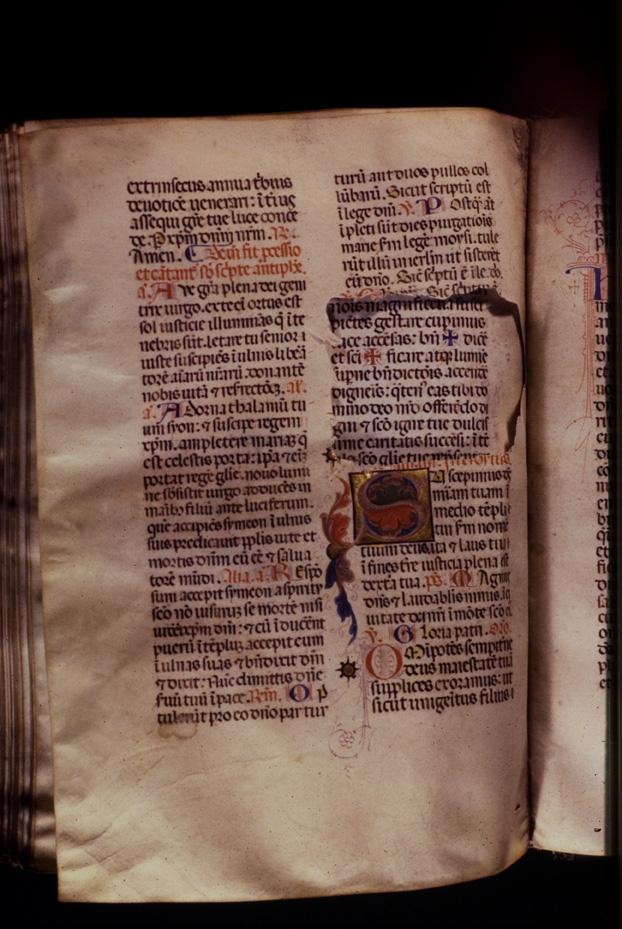 extrinsecus annua t̄buis
deuotiōe uenerari: ī t̄ius
assequi grē tue luce conce
de. P xp̄m dn̄m nr̄m. R.
Amen. Dein fit p̄cessio
et cātant̄ sō sc̄pte antiphe.
a. Aue grā plena dei geni
trix uirgo. ex te eī ortus est
sol iusticie illuminās q̄ ī te
nebris sūt. letare tu senior i
iuste suscipiēs ī ulnis libeā
torē aīarū nr̄arū. donantē
nobis uitā & resrectōeʒ. a.
a. Adorna thalamū tu
um syon: & suscipe regem
xp̄m. amplectere mariaʒ q̄
est celestis porta: ip̄a eī
portat regē glīe. noui lumi
ne sb̄sistit uirgo adducēs in
maībo filiū ante luciferum.
quē accipiēs symeon ī ulnis
suis predicauit pp̄lis uitē et
mortis dn̄m eū eē & salua
torē mūdi. Alia. a. Respō
sum accepit symeon a sp̄u
sc̄o nō uisurū se mortē nisi
uidēt xp̄m dn̄i: & cū īducēnt
puerū ī tēplū: accepit eum
ī ulnas suas & bn̄dixit dn̄m
& dixit: Nūc dimittis dn̄e
suū tuū ī pace. Op
tulerūt pro eo dn̄o par tur
turū aut duos pullos col
lūbarū. Sicut scriptū est
ī lege dn̄i. V. Postq̄ aūt
īpleti sūt dies purgatiōis
marie sm̄ legē moysi. tule
rūt illū in ierlm ut sisterēt
eū dn̄o. Sic sc̄ptū ē ī le. dn̄.
nois magnificentia
gestare cupimus
accēsas: bn̄ ✠ dicē
et sc̄i ✠ ficare atq lumine
dictōis accendē
digneris: q̄ten̄ eas tibi do
mino deo nr̄o offerēdo di
gni & sc̄o igne tue dulcis
sime caritatis succēsi: ī tē
plo sc̄o glīe tue
Suscepimus ds̄
mīam tuam ī
medio tēpli
tui sm̄ nomē
tuum deus ita & laus tua
ī fines tre iusticia plena est
dextā tua. ps. Magnus
dn̄s & laudabilis nimis. ī ci
uitate dei nr̄i ī mōte sc̄o ei
V. Gloria patri. Oro.
Omīpotēs sempitne
deus maiestatē tuā
supplices exoramus: ut
sicut unigeītus filius